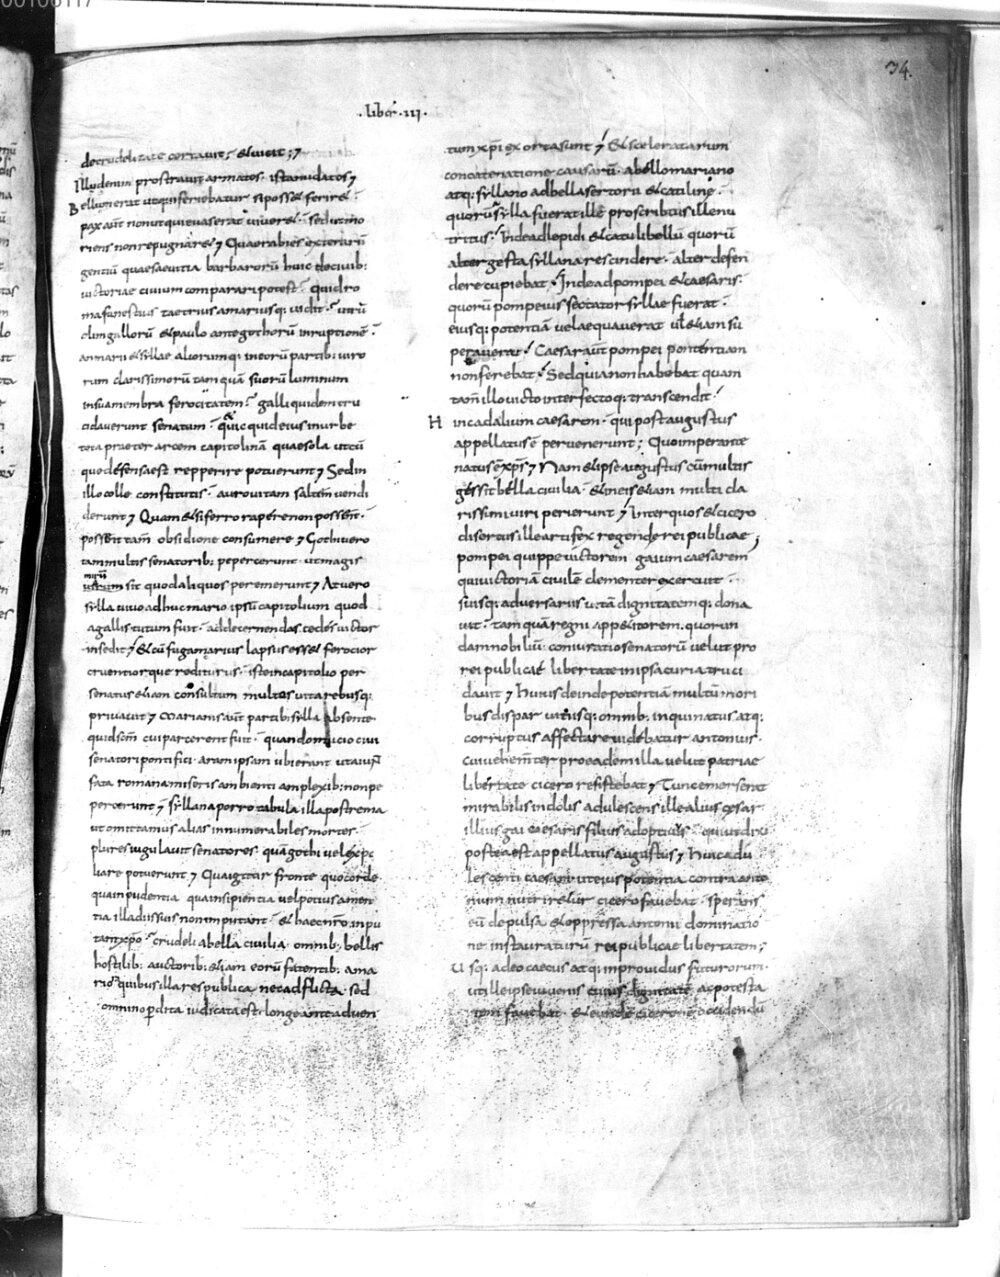 00106117
34.
· liber · III ·
de crudelitate certavit; & vicit;
Illud enim prostravit armatos · ista nudatos
Bellum erat ut qui feriebatur si posset feriret
pax aut̄ non ut qui evaserat viveret · sed ut mo
riens non repugnaret Quae rabies exterarū
gentiū quae saevitia barbarorū huic de civib:
victoriae civium comparari potest · Quid ro
ma funestius taetrius amariusq: vidit · utrū
olim gallorū & paulo ante gothorū inruptionē
an marii & sillae aliorumq: in eorū partib: viro
rum clarissimorū tamquā suorū luminum
in sua membra ferocitatem · galli quidem tru
cidaverunt senatum · quicquid eius in urbe
tota praeter arcem capitolinā quae sola utcū
que defensa est repperire potuerunt Sed in
illo colle constitutis · auro vitam saltem vendi
derunt Quam etsi ferro rapere non possent ·
possent tam̄ obsidione consumere Gothi vero
tam multis senatorib: pepercerunt · ut magis
mirū
sit quod aliquos peremerunt At vero
sylla vivo adhuc mario ipsū capitolium quod
a gallis tutum fuit · ad decernendas cedes victor
insedit & cū fuga marius lapsus esset ferocior
cruentiorque rediturus · iste in capitolio per
senatus etiam consultum multos vita rebusq:
privavit Marianis aut̄ partib: sylla absente ·
quid scm̄ cui parcerent fuit · quando mucio civi
senatori pontifici · aram ipsam ubi erant ut aiunt
fata romana miseris ambienti amplexib: non pe
percerunt syllana porro tabula illa postrema
ut omittamus alias innumerabiles mortes
plures iugulavit senatores · quā gothi vel exspo
liare potuerunt Qua igitur fronte quo corde
qua inpudentia qua insipientia vel potius amen
tia illa diis suis non imputant · & haec nr̄o inpu
tant xp̄o · crudelia bella civilia · omnib: bellis
hostilib: auctorib: etiam eorū fatentib: ama
riora quibus illa res publica nec adflicta · sed
omnino perdita iudicata est · longe ante adven
tum xp̄i exorta sunt & sceleratarum
concatenatione causarū · a bello mariano
atq: syllano ad bella sertorii & catiline ·
quorū sylla fuerat ille proscribtus ille nu
tritus · Inde ad lepidi & catuli bellū quorū
alter gesta syllana rescindere · alter defen
dere cupiebat · Inde ad pompei & caesaris ·
quorū pompeius sectator syllae fuerat ·
eiusq: potentiā vel aequaverat vel etiam su
peraverat · Caesar aut̄ pompei potentiam
non ferebat · Sed quia non habebat quam
tam̄ illo victo interfectoq: transcendit ·
Hinc ad alium caesarem · qui post augustus
appellatus ē pervenerunt ; Quo imperante
natus ē xp̄s Nam & ipse augustus cū multis
gessit bella civilia · & in eis etiam multi cla
rissimi viri perierunt Inter quos & cicero
disertus ille artifex regende rei publicae ;
pompei quippe victorem gaium caesarem
qui victoriā civilē clementer exercuit ·
suisq: adversariis vitā dignitatemq: dona
vit · tamquā regni appetitorem · quorun
dam nobiliū · coniuratio senatorū velut pro
rei publicae libertate in ipsa curia truci
davit Huius deinde potentiā multū mori
bus dispar vitiisq: omnib: inquinatus atq:
corruptus affectare videbatur antonius ·
cui vehem̄ter pro eadem illa velut patriae
libertate cicero resistebat Tunc emerserat
mirabilis indolis adulescens ille alius cęsar
illius gai caesaris filius adoptivus · qui ut dixi
postea est appellatus augustus Huic adu
lescenti caesari ut eius potentia contra anto
nium nutriretur cicero favebat · sperans
eū depulsa & oppressa antonii dominatio
ne instauraturū rei publicae libertatem ;
Usq: adeo caecus atq: improvidus futurorum ·
ut ille ipse iuvenis cuius dignitate ac potesta
tem favebat · & eundē ciceronē occidendū